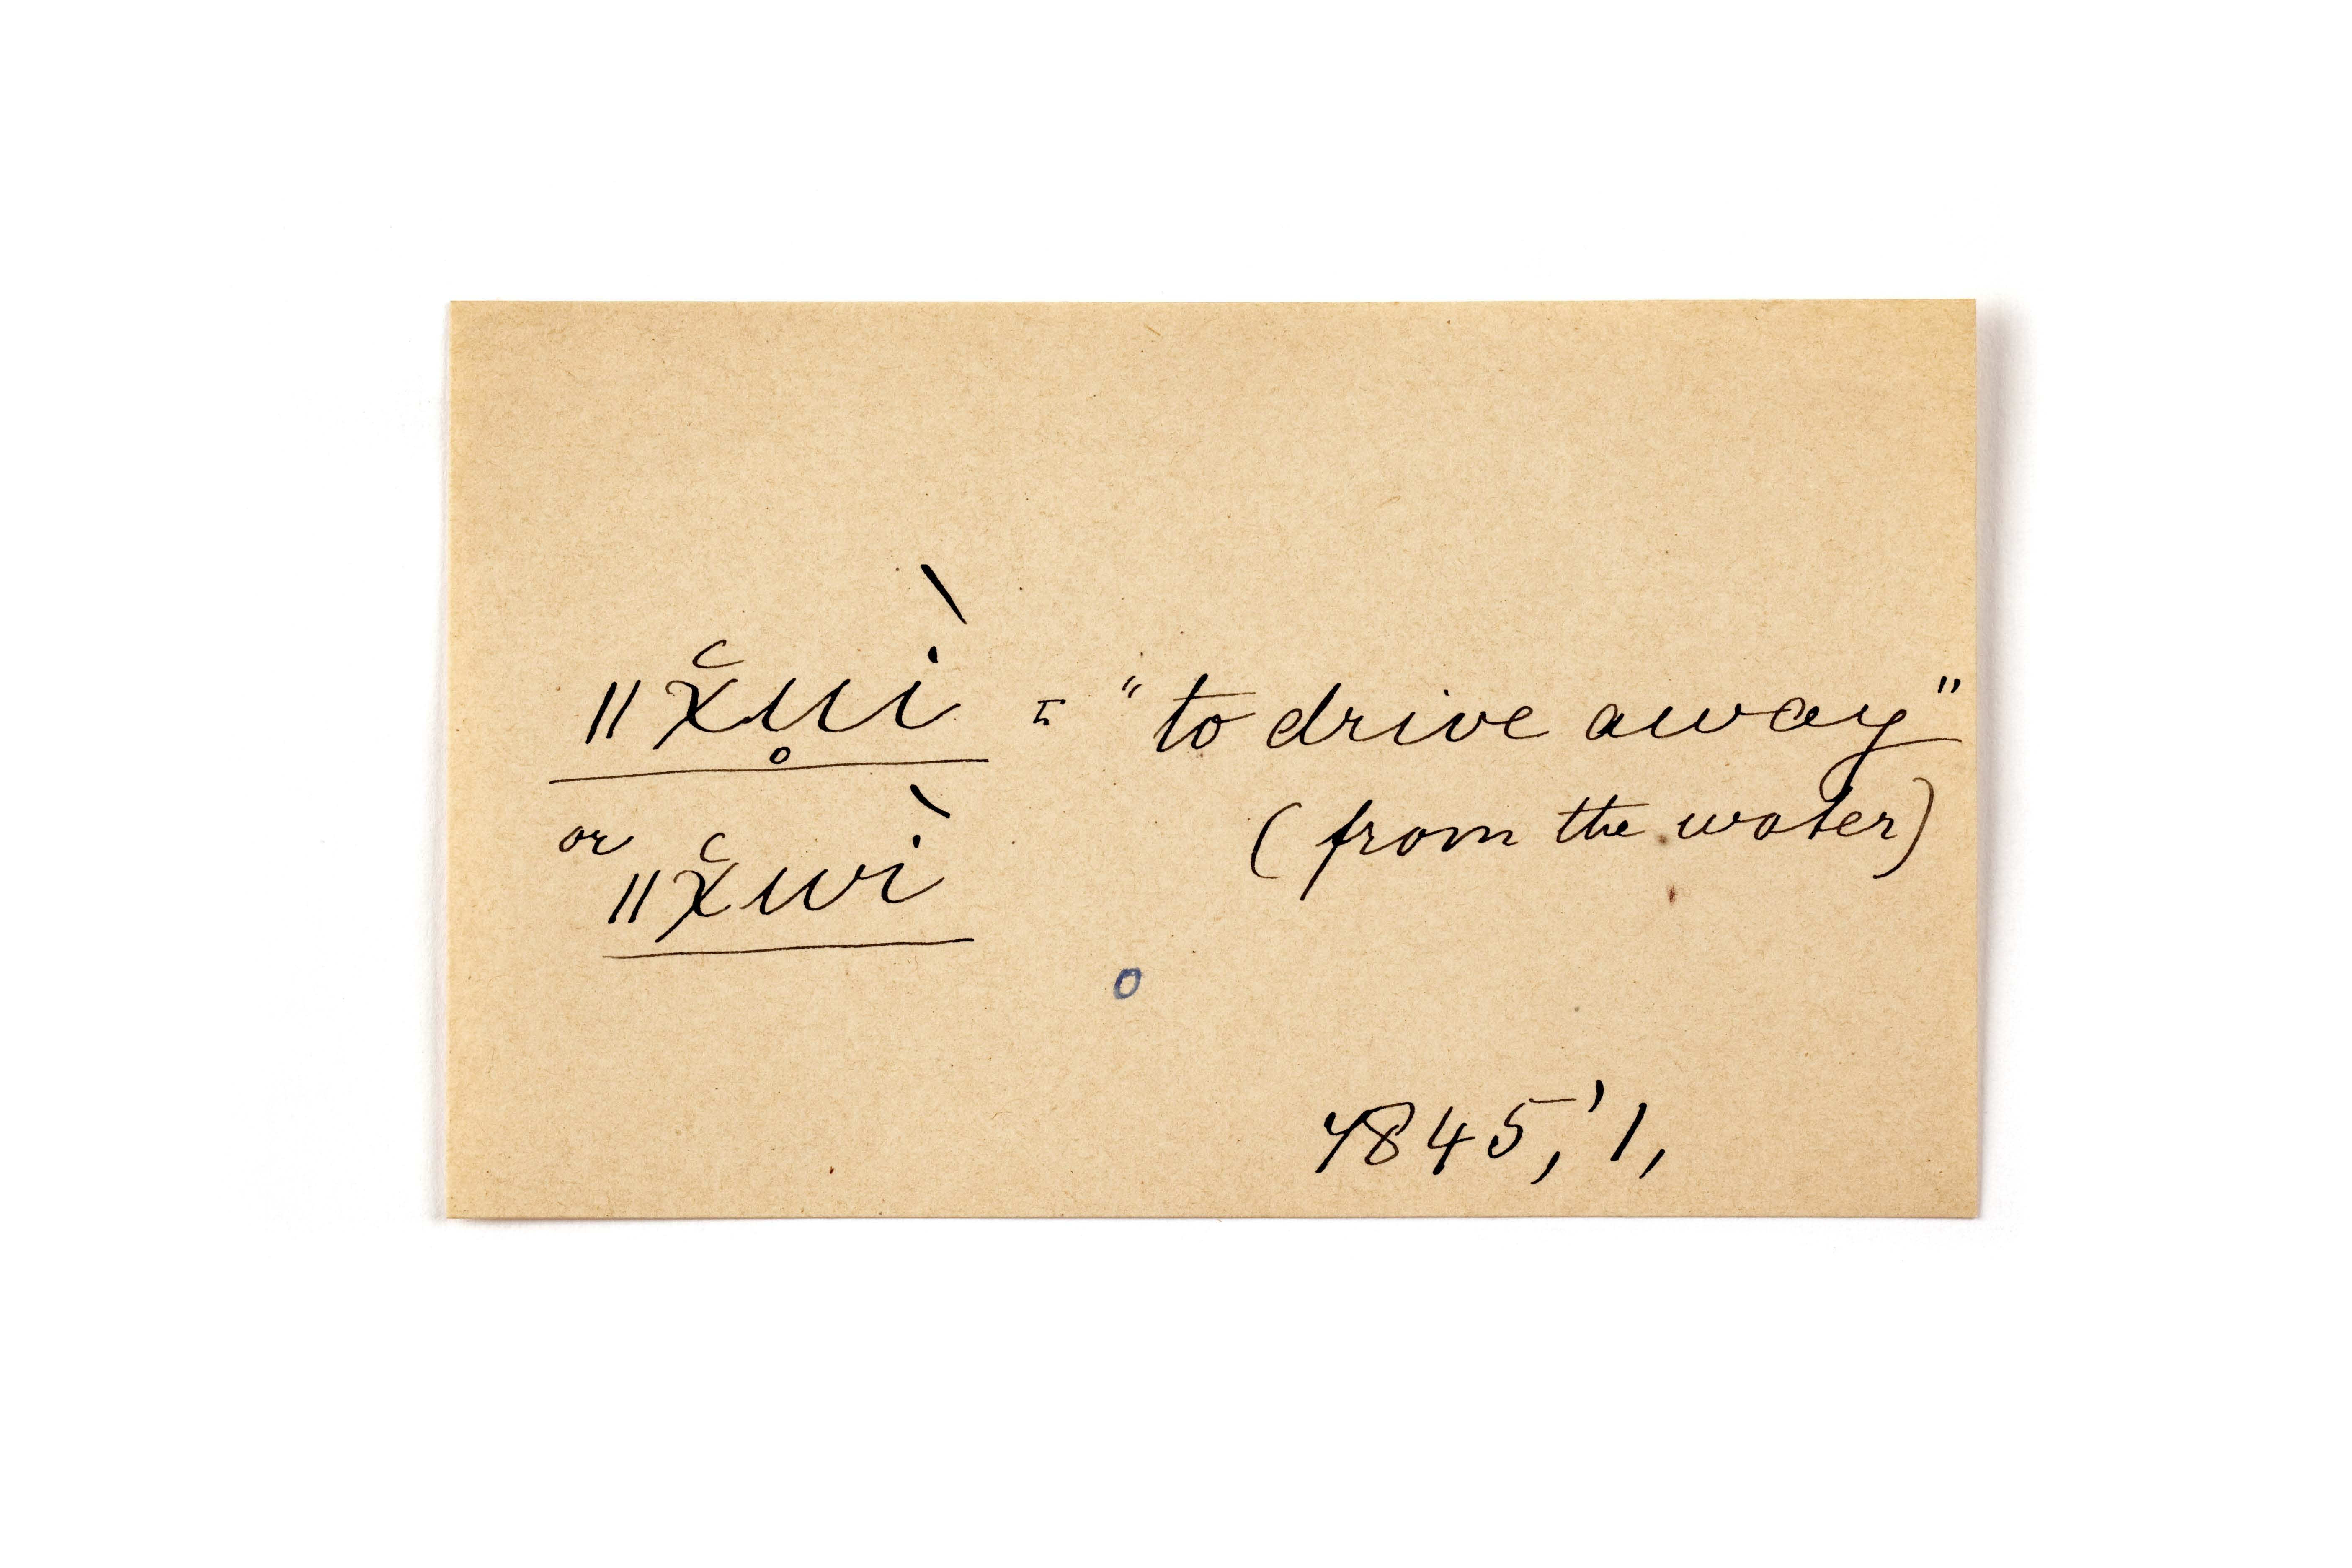 ǁχ̆u̥ì = "to drive away"
or ǁχ̆wì (from the water)
o
4845,'1,